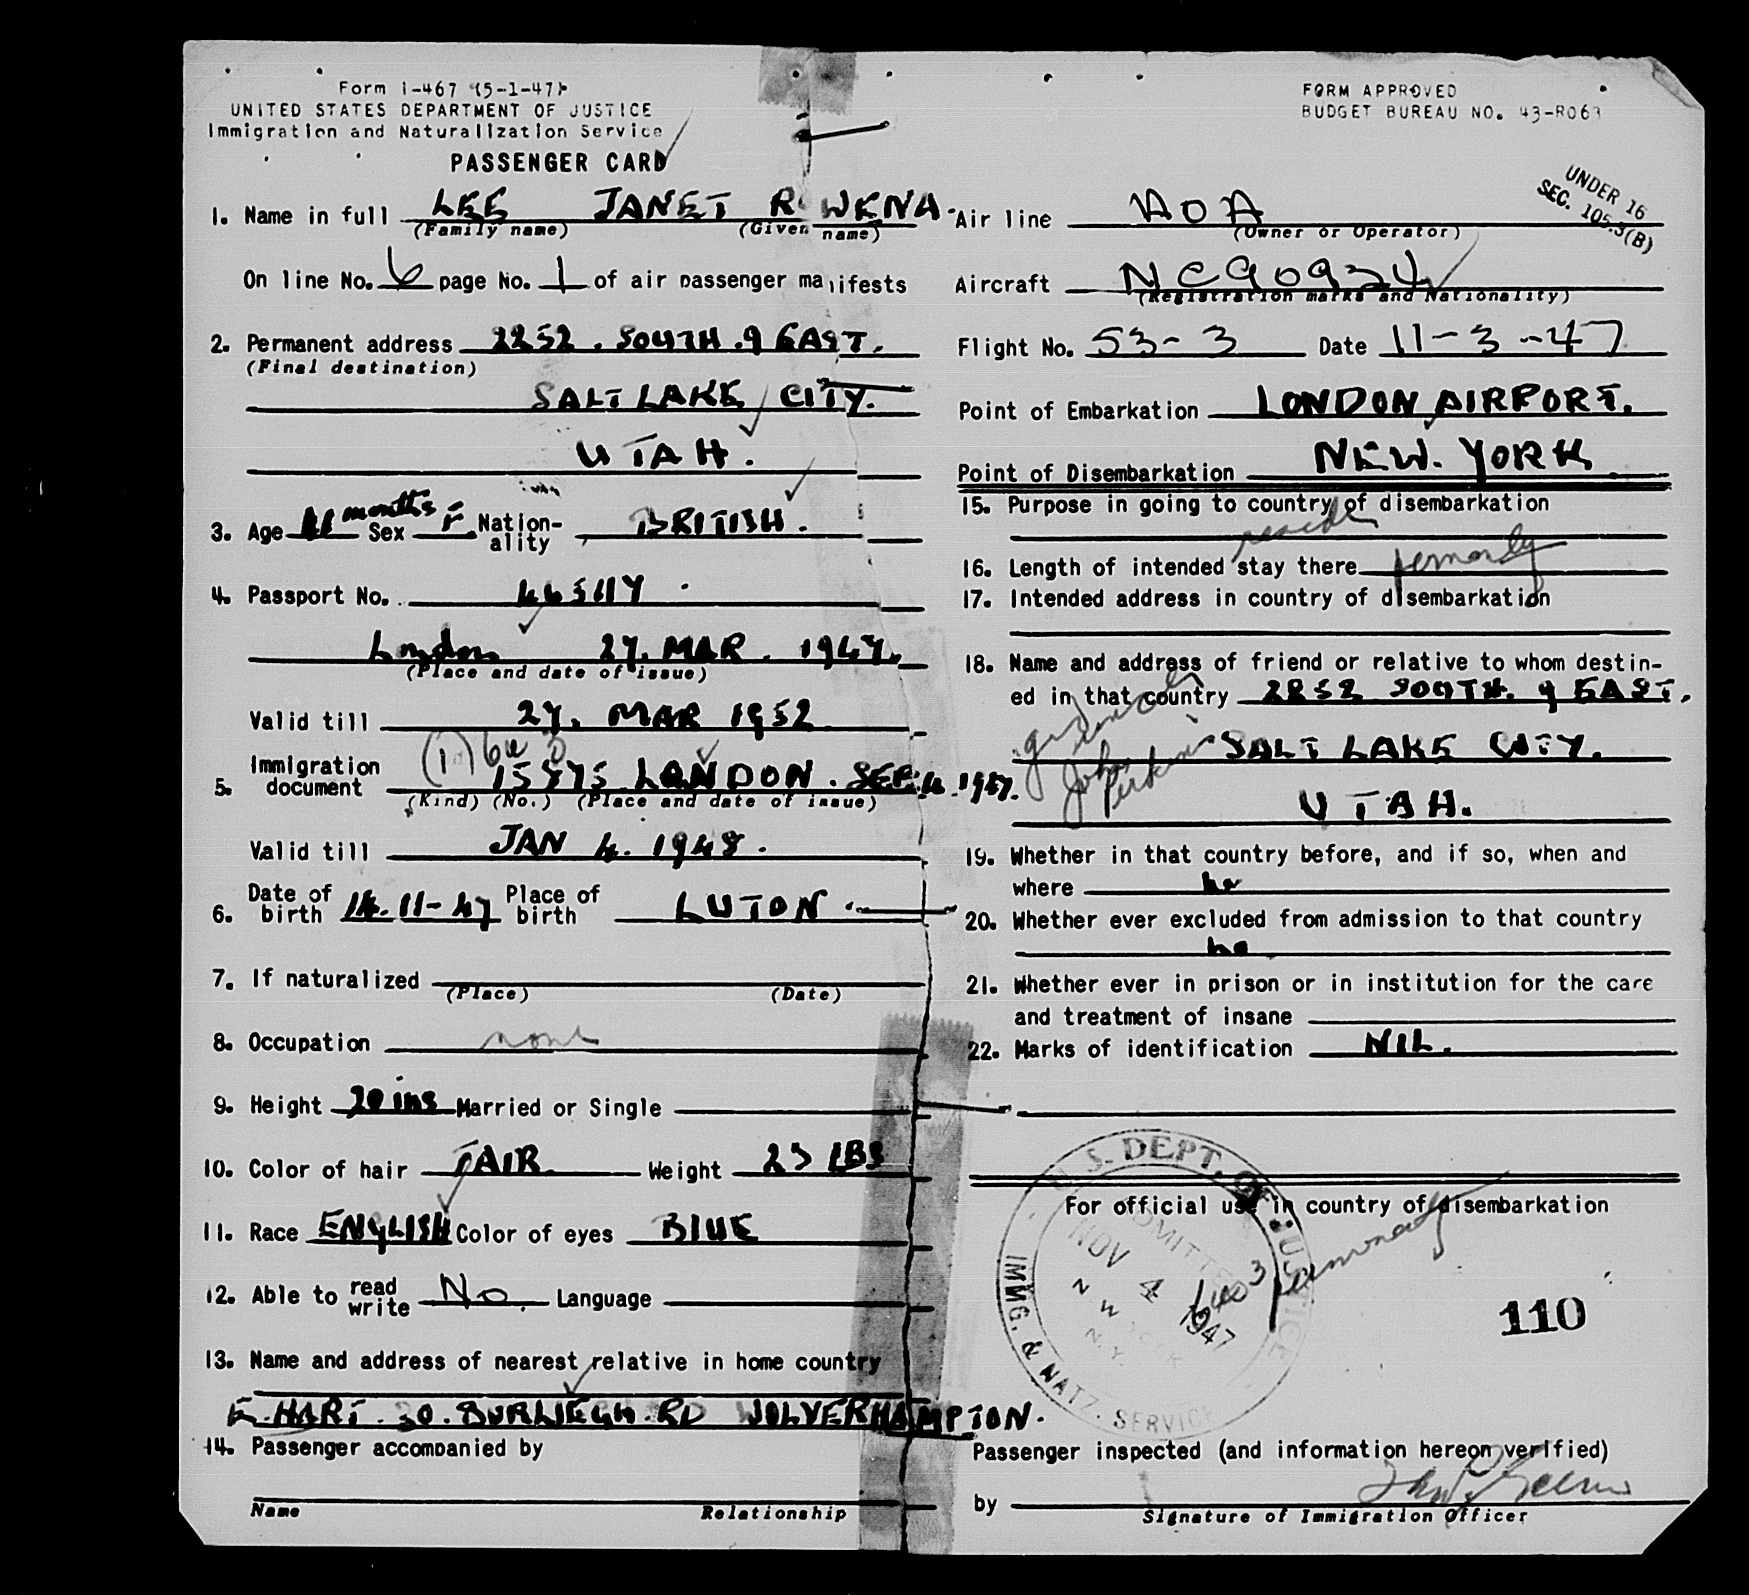 Form I-467 (5-1-47)
UNITED STATES DEPARTMENT OF JUSTICE
Immigration and Naturalization Service
PASSENGER CARD
FORM APPROVED
BUDGET BUREAU NO. 43-R063
UNDER 16
SEC. 105.3(B)
1. Name in full LEE JANET ROWENA.
(Family name) (Given name)
On line No. 6 page No. 1 of air passenger manifests
2. Permanent address 2252. SOUTH. 9 EAST.
(Final destination)
SALT LAKE CITY.
UTAH.
3. Age 11 months Sex F Nation-ality BRITISH.
4. Passport No.
London 27. MAR. 1947.
(Place and date of issue)
Valid till 27. MAR 1952
5. Immigration document LONDON. SEP. 4. 1947.
(Kind) (No.) (Place and date of issue)
Valid till JAN 4. 1948.
6. Date of birth 14.11-47 Place of birth LUTON.
7. If naturalized
(Place) (Date)
8. Occupation none
9. Height 20 ins Married or Single
10. Color of hair FAIR Weight LBS
11. Race ENGLISH Color of eyes BLUE
12. Able to read write No. Language
13. Name and address of nearest relative in home country
E. HART. 30. BURLIEGH. RD WOLVERHAMPTON.
14. Passenger accompanied by
Name Relationship
Air line AOA
(Owner or Operator)
Aircraft NC90924
(Registration marks and Nationality)
Flight No. 53-3 Date 11-3-47
Point of Embarkation LONDON AIRPORT.
Point of Disembarkation NEW. YORK
15. Purpose in going to country of disembarkation
reside
16. Length of intended stay there
17. Intended address in country of disembarkation
18. Name and address of friend or relative to whom destin-
ed in that country 2252 SOUTH. 9 EAST.
John Perkins SALT LAKE CITY.
UTAH.
19. Whether in that country before, and if so, when and
where no
20. Whether ever excluded from admission to that country
no
21. Whether ever in prison or in institution for the care
and treatment of insane
22. Marks of identification NIL.
For official use in country of disembarkation
U.S. DEPT. OF JUSTICE
ADMITTED
NOV 4 1947
NEW YORK
N.Y.
IMMG. & NATZ. SERVICE
110
Passenger inspected (and information hereon verified)
by
Signature of Immigration Officer